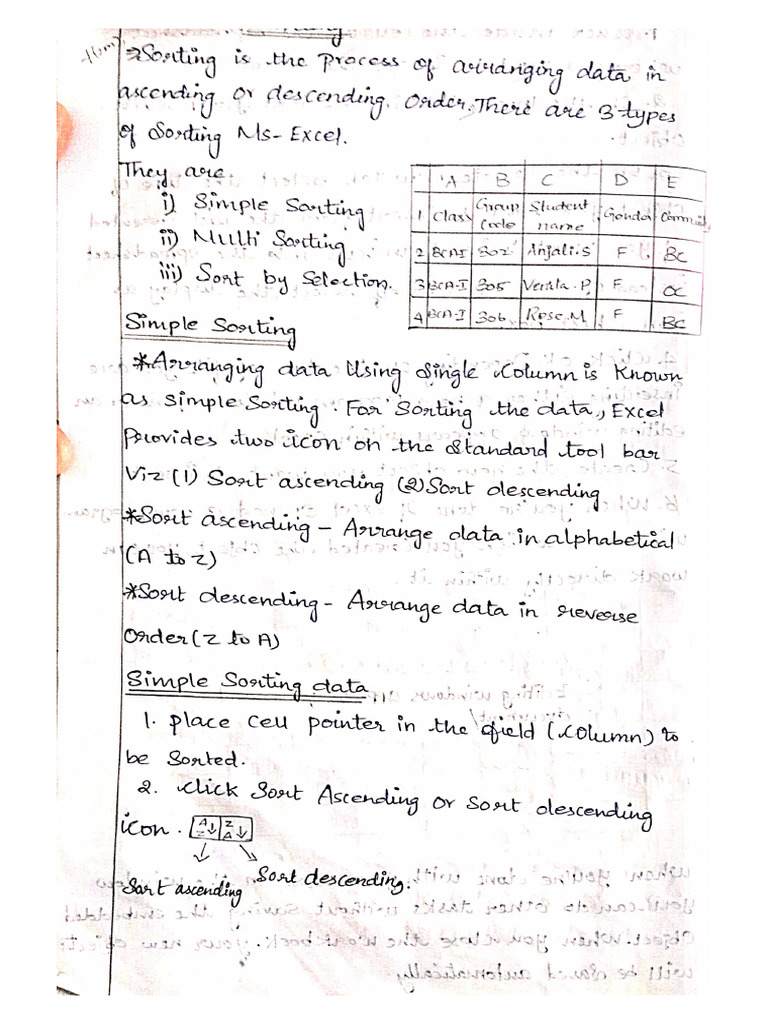 ⇒Sorting is the process of arranging data in
ascending or descending order. There are 3 types
of Sorting Ms-Excel.
They are.
i) Simple Sorting
ii) Multi Sorting
iii) Sort by Selection.
A B C D E
1 Class Group Code Student name
2 BCA-I 302 Anjali.S F BC
3 BCA-I 305 P. F OC
4 BCA-I 306 Rose.M F BC
Simple Sorting
*Arranging data Using Single Column is Known
as simple Sorting. For Sorting the data, Excel
Provides two icon on the Standard tool bar
Viz (1) Sort ascending (2) Sort descending
*Sort ascending - Arrange data in alphabetical
(A to Z)
*Sort descending - Arrange data in reverse
Order (Z to A)
Simple Sorting data
1. place cell pointer in the field (column) to
be Sorted.
2. click Sort Ascending or Sort descending
icon. A Z Z A
Sort ascending Sort descending.